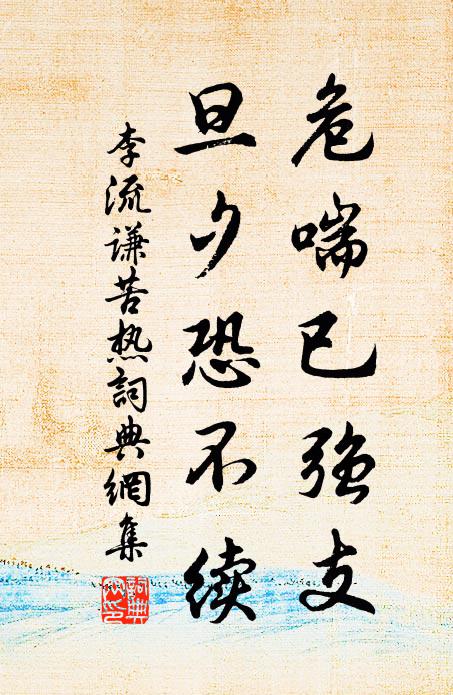 危喘已強支
旦夕恐不續
李流谦苦热詞典網集